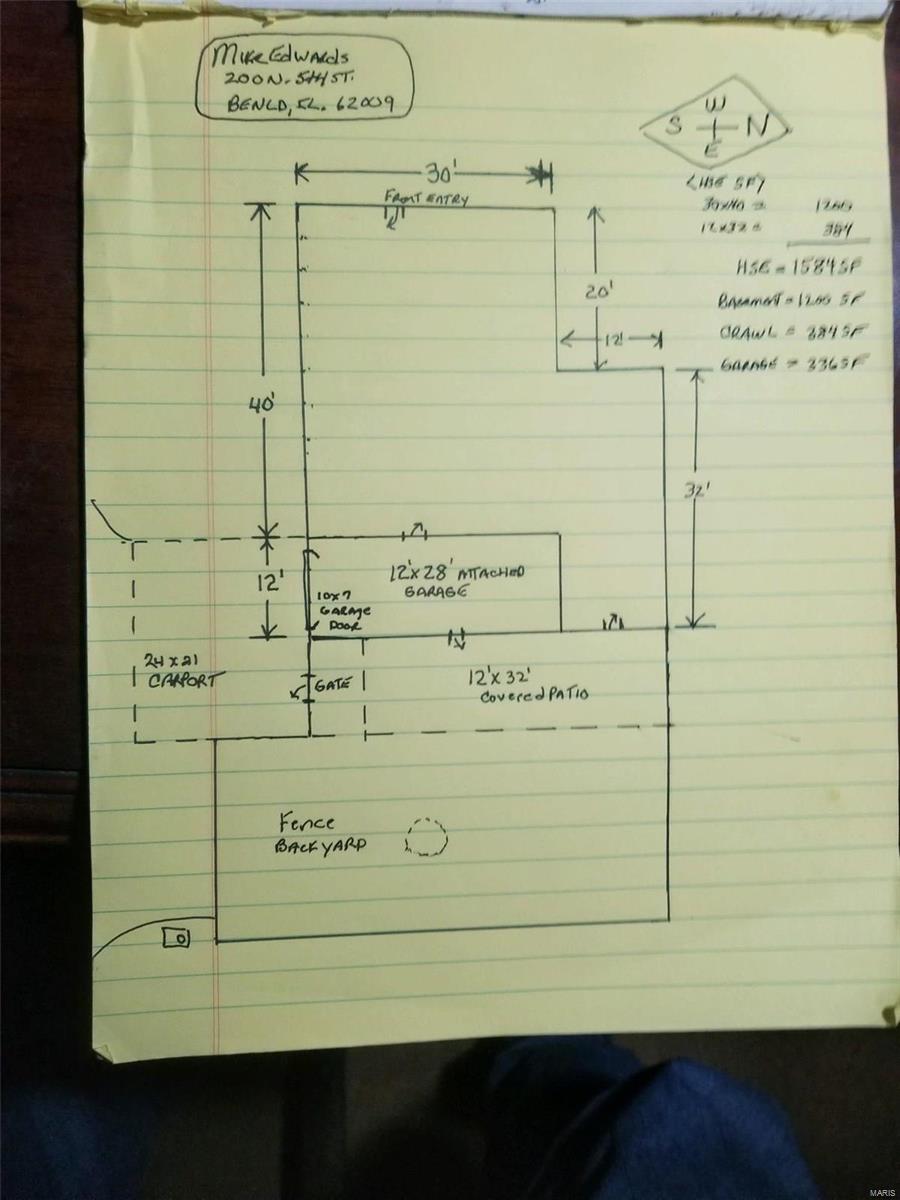 Mike Edwards
200 N. 5th ST.
BENLD, IL. 62009
W
S N
E
30'
FRONT ENTRY
<HSE SF>
30x40 = 1200
12x32 = 384
HSE = 1584 SF
BASEMENT = 1200 SF
CRAWL = 384 SF
GARAGE = 336 SF
20'
12'
40'
32'
12'
12'x 28' ATTACHED
GARAGE
10x7
GARAGE
DOOR
24 x 21
CARPORT
GATE
12'x 32'
Covered PATIO
Fence
BACKYARD
MARIS